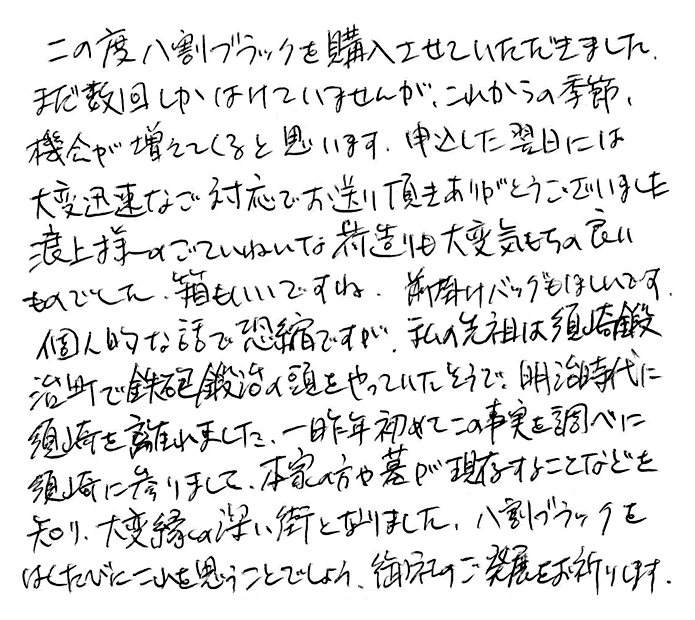 この度八割ブラックを購入させていただきました.
まだ数回しかはけていませんが、これからの季節、
機会が増えてくると思います. 申込した翌日には
大変迅速なご対応でお送り頂きありがとうございました
渡上様のごていねいな荷造りも大変気もちの良い
ものでした. 箱もいいですね. 前掛けバッグもほしいです.
個人的な話で恐縮ですが、私の先祖は須崎鍛
治町で鉄砲鍛治の頭をやっていたそうで、明治時代に
須崎を離れました、一昨年初めてこの事実を調べに
須崎に参りまして、本家の方や墓が現存することなどを
知り、大変縁の深い街となりました. 八割ブラックを
はくたびにこれを思うことでしょう、御社のご発展をお祈りします.